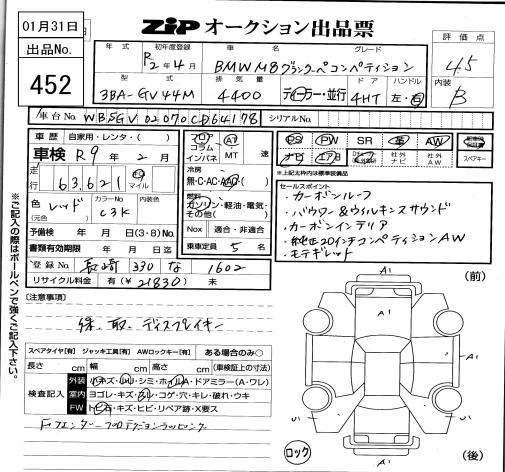 01月31日
出品No.
452
ZIP オークション出品票
年式
初年度登録
車名
グレード
評価点
R2年4月
BMW M8グランクーペコンペティション
4.5
型式
排気量
ドア
ハンドル
内装
3BA-GV44M
4400
ディーラー・並行
4HT
左・右
B
車台No.
WBSGV02070CD64178
シリアルNo.
車歴
自家用・レンタ・( )
フロア
コラム
インパネ
AT
MT
速
PS
PW
SR
革
AW
ナビ
エアB
社外ナビ
社外AW
スペアキー
車検
R9年2月
※上記太枠内は標準装備品
走行
63,621
マイル
冷房
無・C・AC・AAC
セールスポイント
・カーボンルーフ
・バウワー&ウィルキンスサウンド
・カーボンインテリア
・純正20インチコンペティションAW
・モテギレット
色
レッド
(元色)
カラーNo.
C3K
内装色
燃料
ガソリン・軽油・電気・その他( )
予備検
年 月 日(3・8)No.
Nox
適合・非適合
書類有効期限
年 月 日迄
乗車定員
5名
登録No.
長崎 330 な 1602
リサイクル料金
有(¥21830) 未
(前)
【注意事項】
録、取、ディスプレイキー
A1
A1
スペアタイヤ【有】 ジャッキ工具【有】 AWロックキー【有】
ある場合のみ○
長さ cm 幅 cm 高さ cm (車検証上の寸法)
検査記入
外装
小キズ・小U・シミ・ホイルA・ドアミラー(A・ワレ)
室内
ヨゴレ・キズ・スレ・コゲ・穴・キレ・破れ・ウキ
FW
トビ石・キズ・ヒビ・リペア跡・X要ス
F、フェンダープロテクションラッピング
A1
ロック
(後)
※ご記入の際はボールペンで強くご記入下さい。